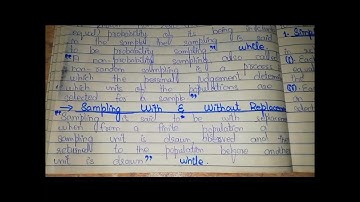 equal probability of its being included
in the sample then sampling is said
to be probability sampling" while
"In non-probability sampling also called
non-random sampling is a process
in which the personal judgement determine
which units of the populations are
selected for a sample."
→ Sampling With & Without Replacement
"Sampling is said to be with replacement
when from a finite population a
sampling unit is drawn, observed and then
returned to the population before another
unit is drawn" while.
1. Simp